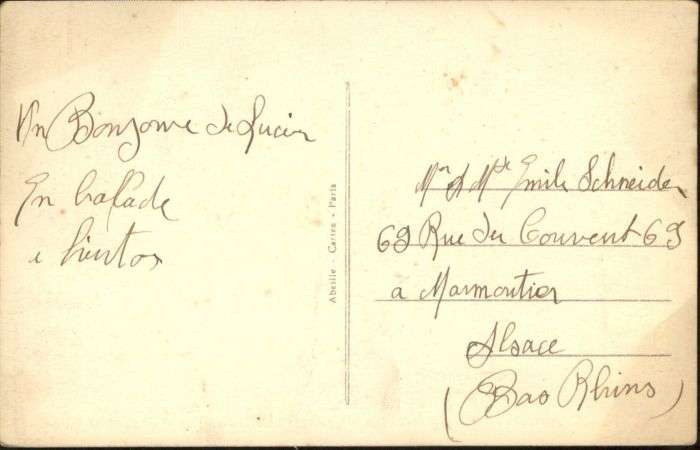 Un Bonjour de Lucien
En balade
a bientot
Abeille - Cartes - Paris
Mr et Mde Emile Schneider
69 Rue du Couvent 69
a Marmoutier
Alsace
(Bas Rhins)